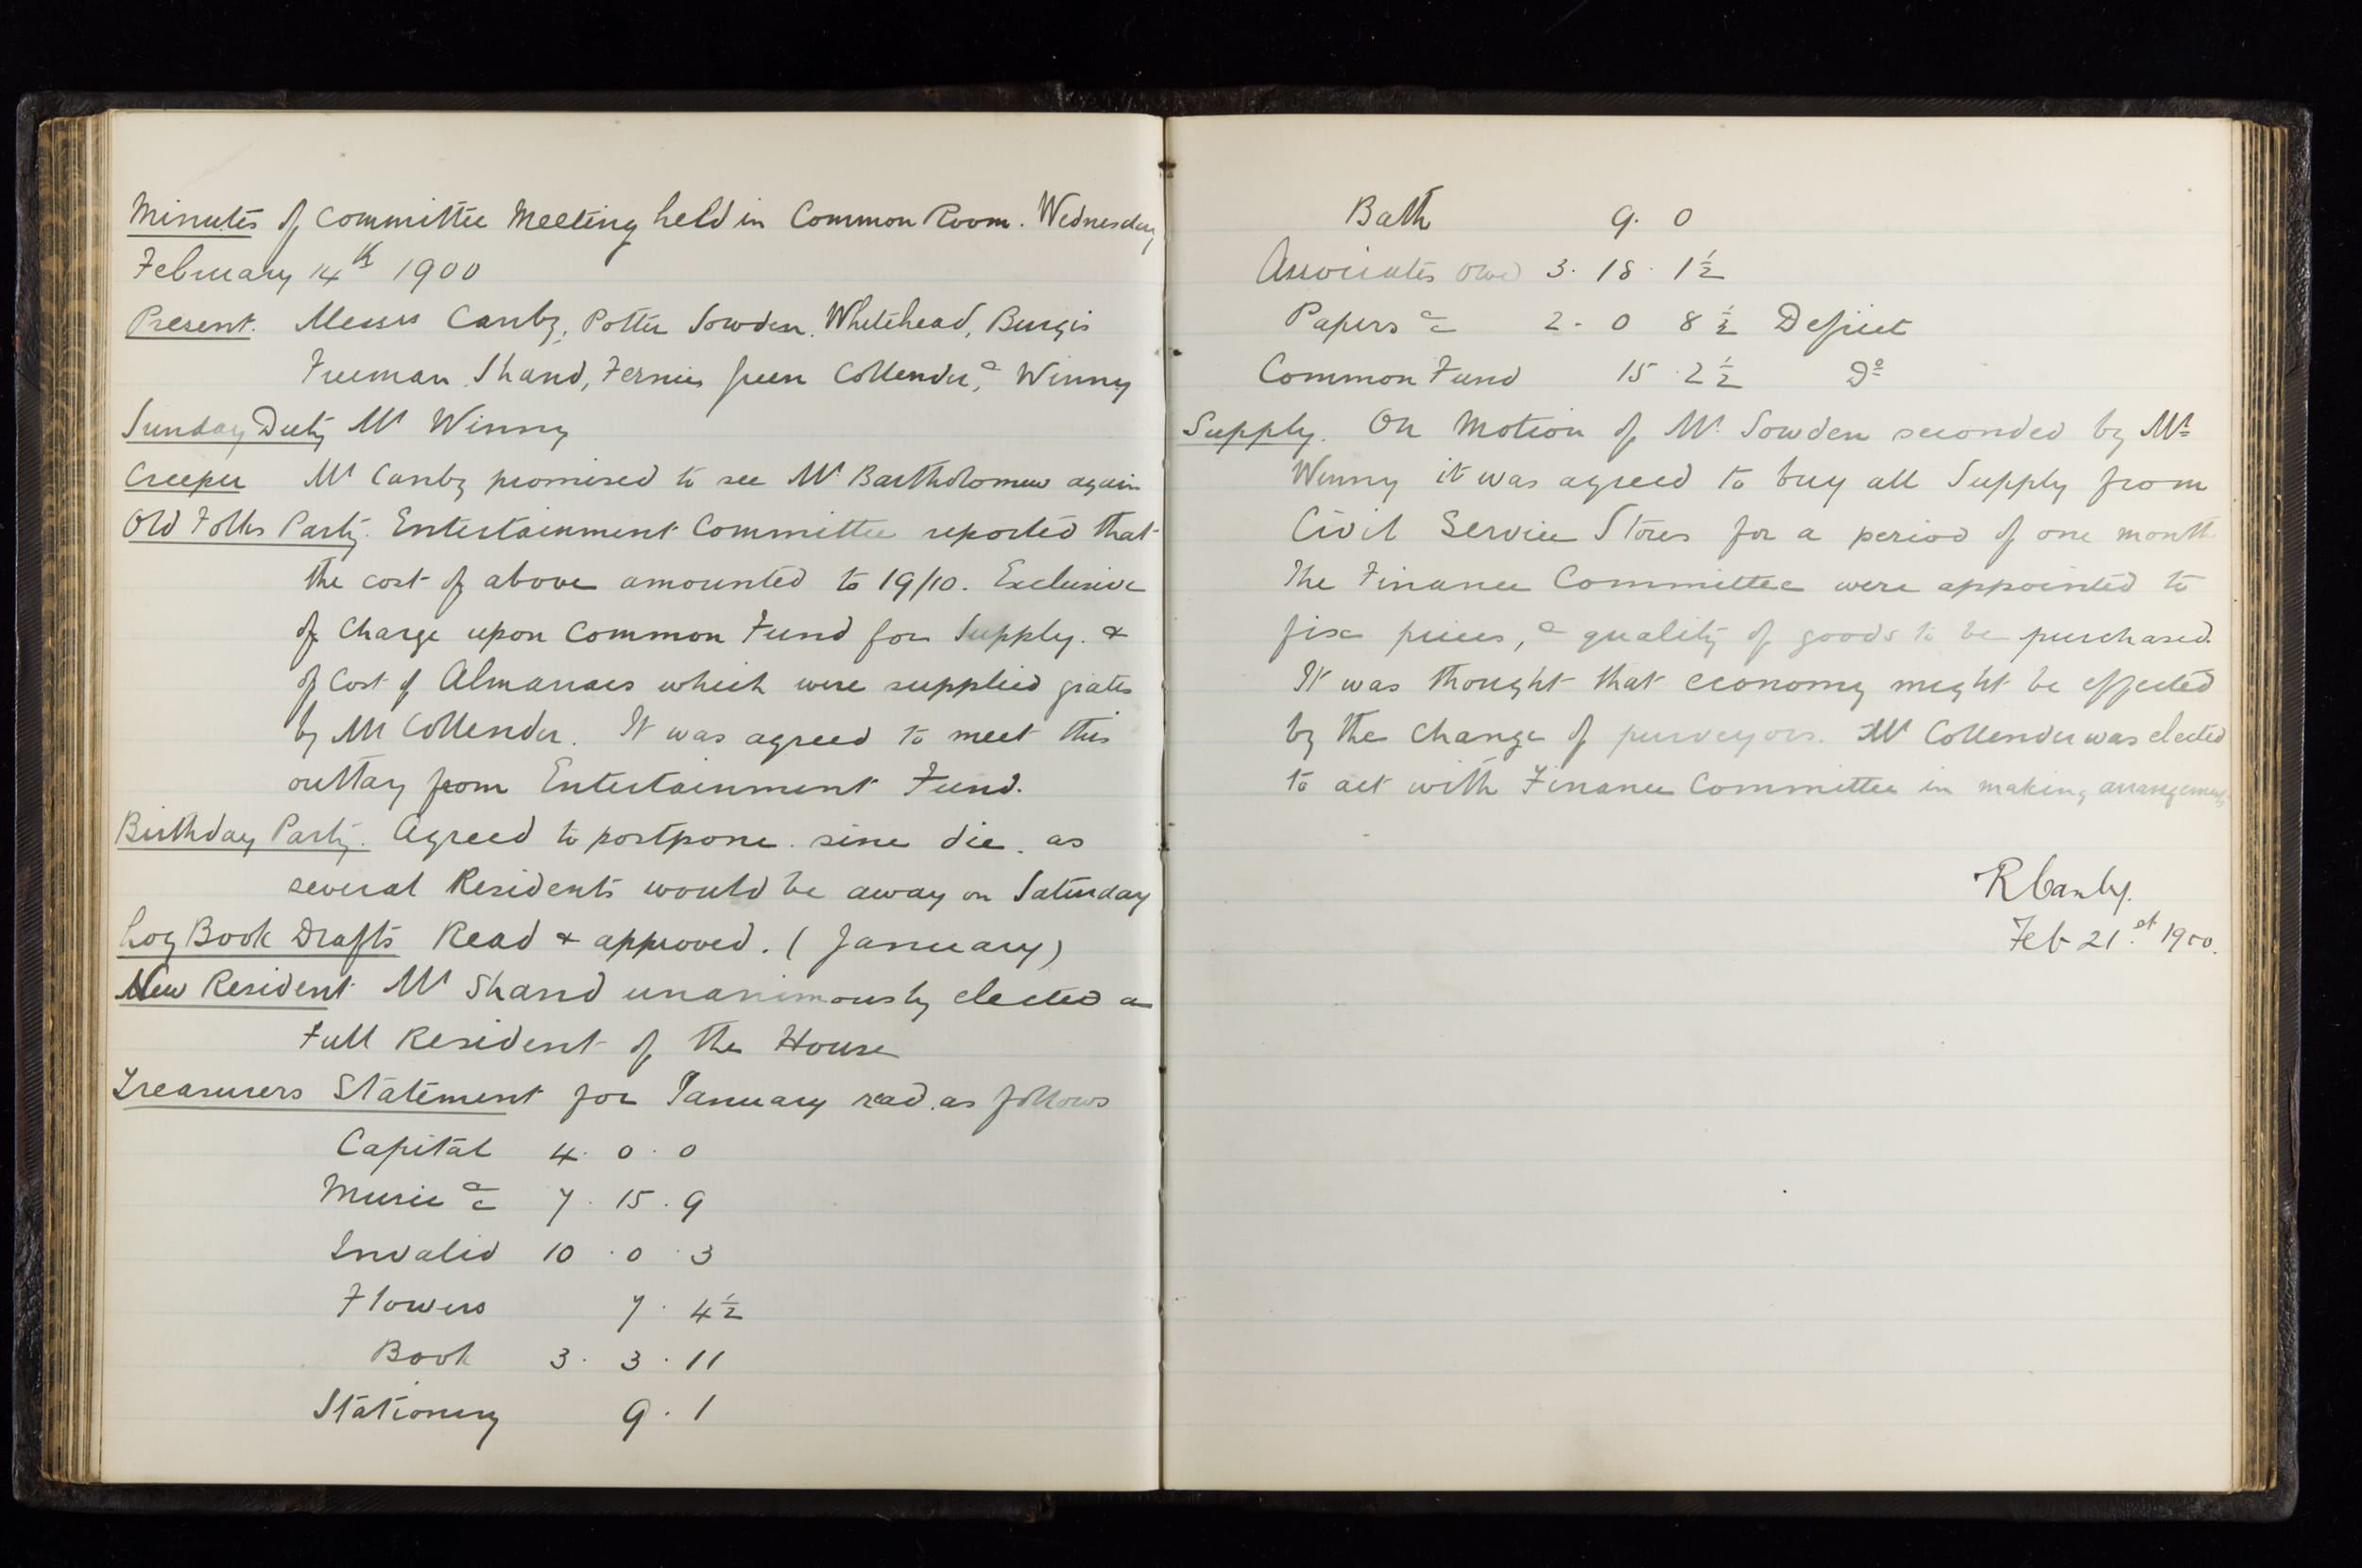 Minutes of Committee Meeting held in Common Room. Wednesday
February 14th 1900
Present. Messrs Canby, Potter Sowden. Whitehead, Burgis
Freeman. Shand, Fernie Green Collender, & Winny
Sunday Duty Mr Winny
Creeper Mr Canby promised to see Mr Bartholomew again
Old Folks Party. Entertainment Committee reported that
the cost of above amounted to 19/10. Exclusive
of Charge upon Common Fund for Supply. &
of Cost of Almanacs which were supplied gratis
by Mr Collender. It was agreed to meet this
outlay from Entertainment Fund.
Birthday Party. Agreed to postpone. sine die. as
several Residents would be away on Saturday
Log Book Drafts Read & approved. (January)
New Resident Mr Shand unanimously elected a
Full Resident of the House
Treasurers Statement for January read as follows
Capital 4. 0. 0
Music a/c 7. 15. 9
Invalid 10. 0. 3
Flowers 7. 4½
Book 3. 3. 11
Stationery 9. 1
Bath 9. 0
Associates owe 3. 18. 1½
Papers a/c 2. 0 8½ Deficit
Common Fund 15. 2½ Do
Supply. On Motion of Mr. Sowden seconded by Mr
Winny it was agreed to buy all Supply from
Civil Service Stores for a period of one month
The Finance Committee were appointed to
fix prices, & quality of goods to be purchased.
It was thought that economy might be effected
by the change of purveyors. Mr Collender was elected
to act with Finance Committee in making arrangements.
R Canby.
Feb 21st 1900.